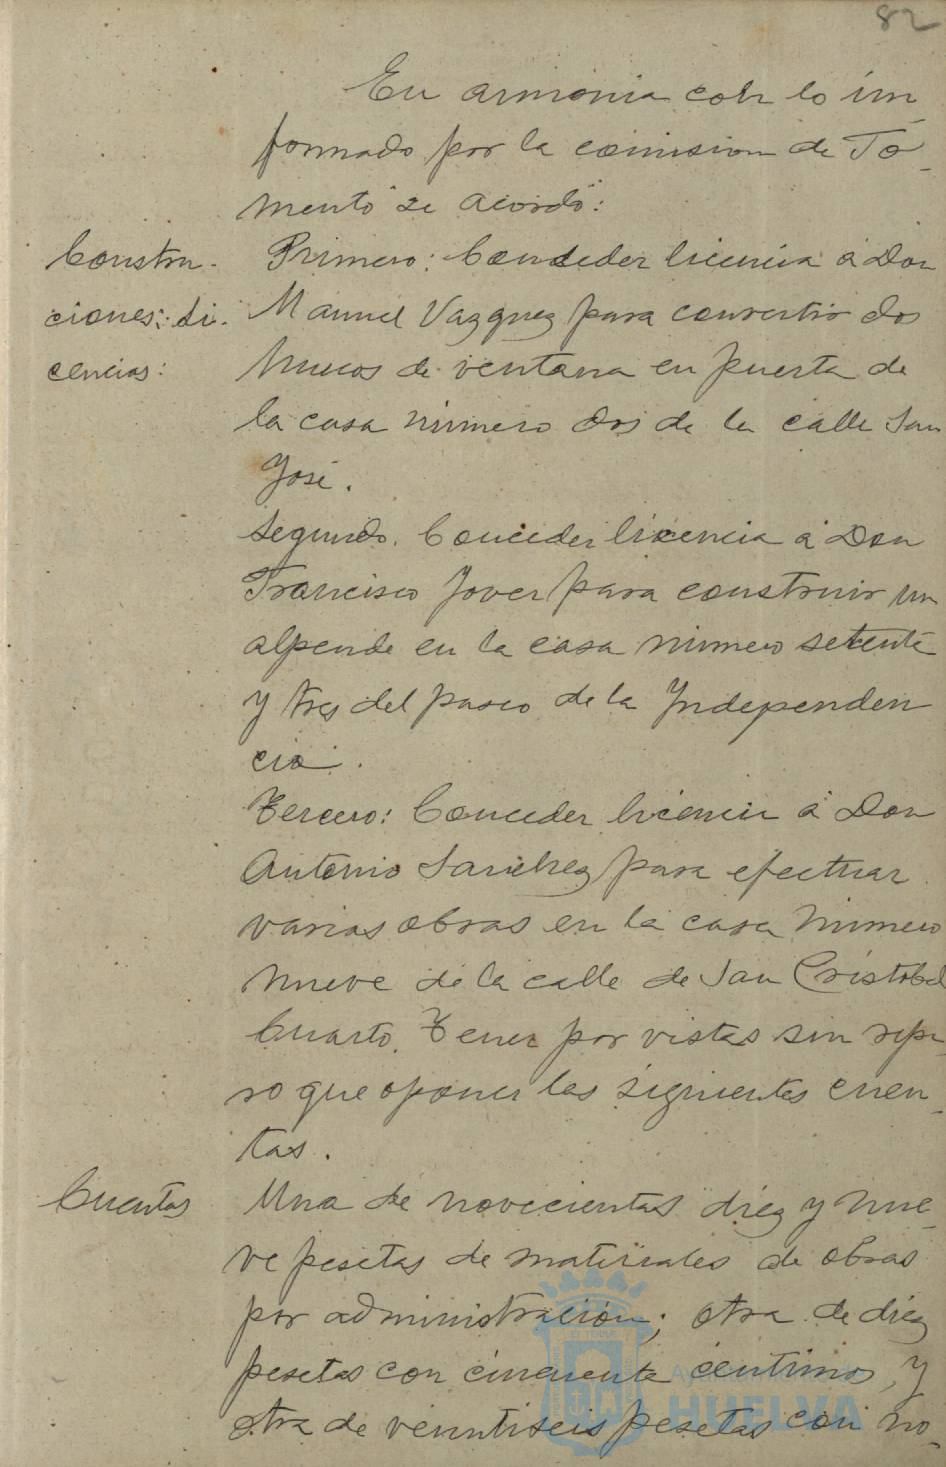 82
En armonia con lo in_
formado por la comision de Fo_
mento se acordó:
Constru-
ciones: Li-
cencias:
Primero: Conceder licencia á Don
Manuel Vazquez para convertir dos
huecos de ventana en puerta de
la casa número dos de la calle San
José.
Segundo. Conceder licencia á Don
Francisco Jover para construir un
alpende en la casa número setenta
y tres del paseo de la Independen
cia.
Tercero: Conceder licencia á Don
Antonio Sanchez para efectuar
varias obras en la casa número
nueve de la calle de San Cristobal
Cuarto. Tener por vistas sin repa-
ro que oponer las siguientes cuen-
tas.
Cuentas
Una de novecientas diez y nue-
ve pesetas de materiales de obras
por administración; otra de diez
pesetas con cincuenta centimos, y
otra de veintiseis pesetas con no-
HUELVA